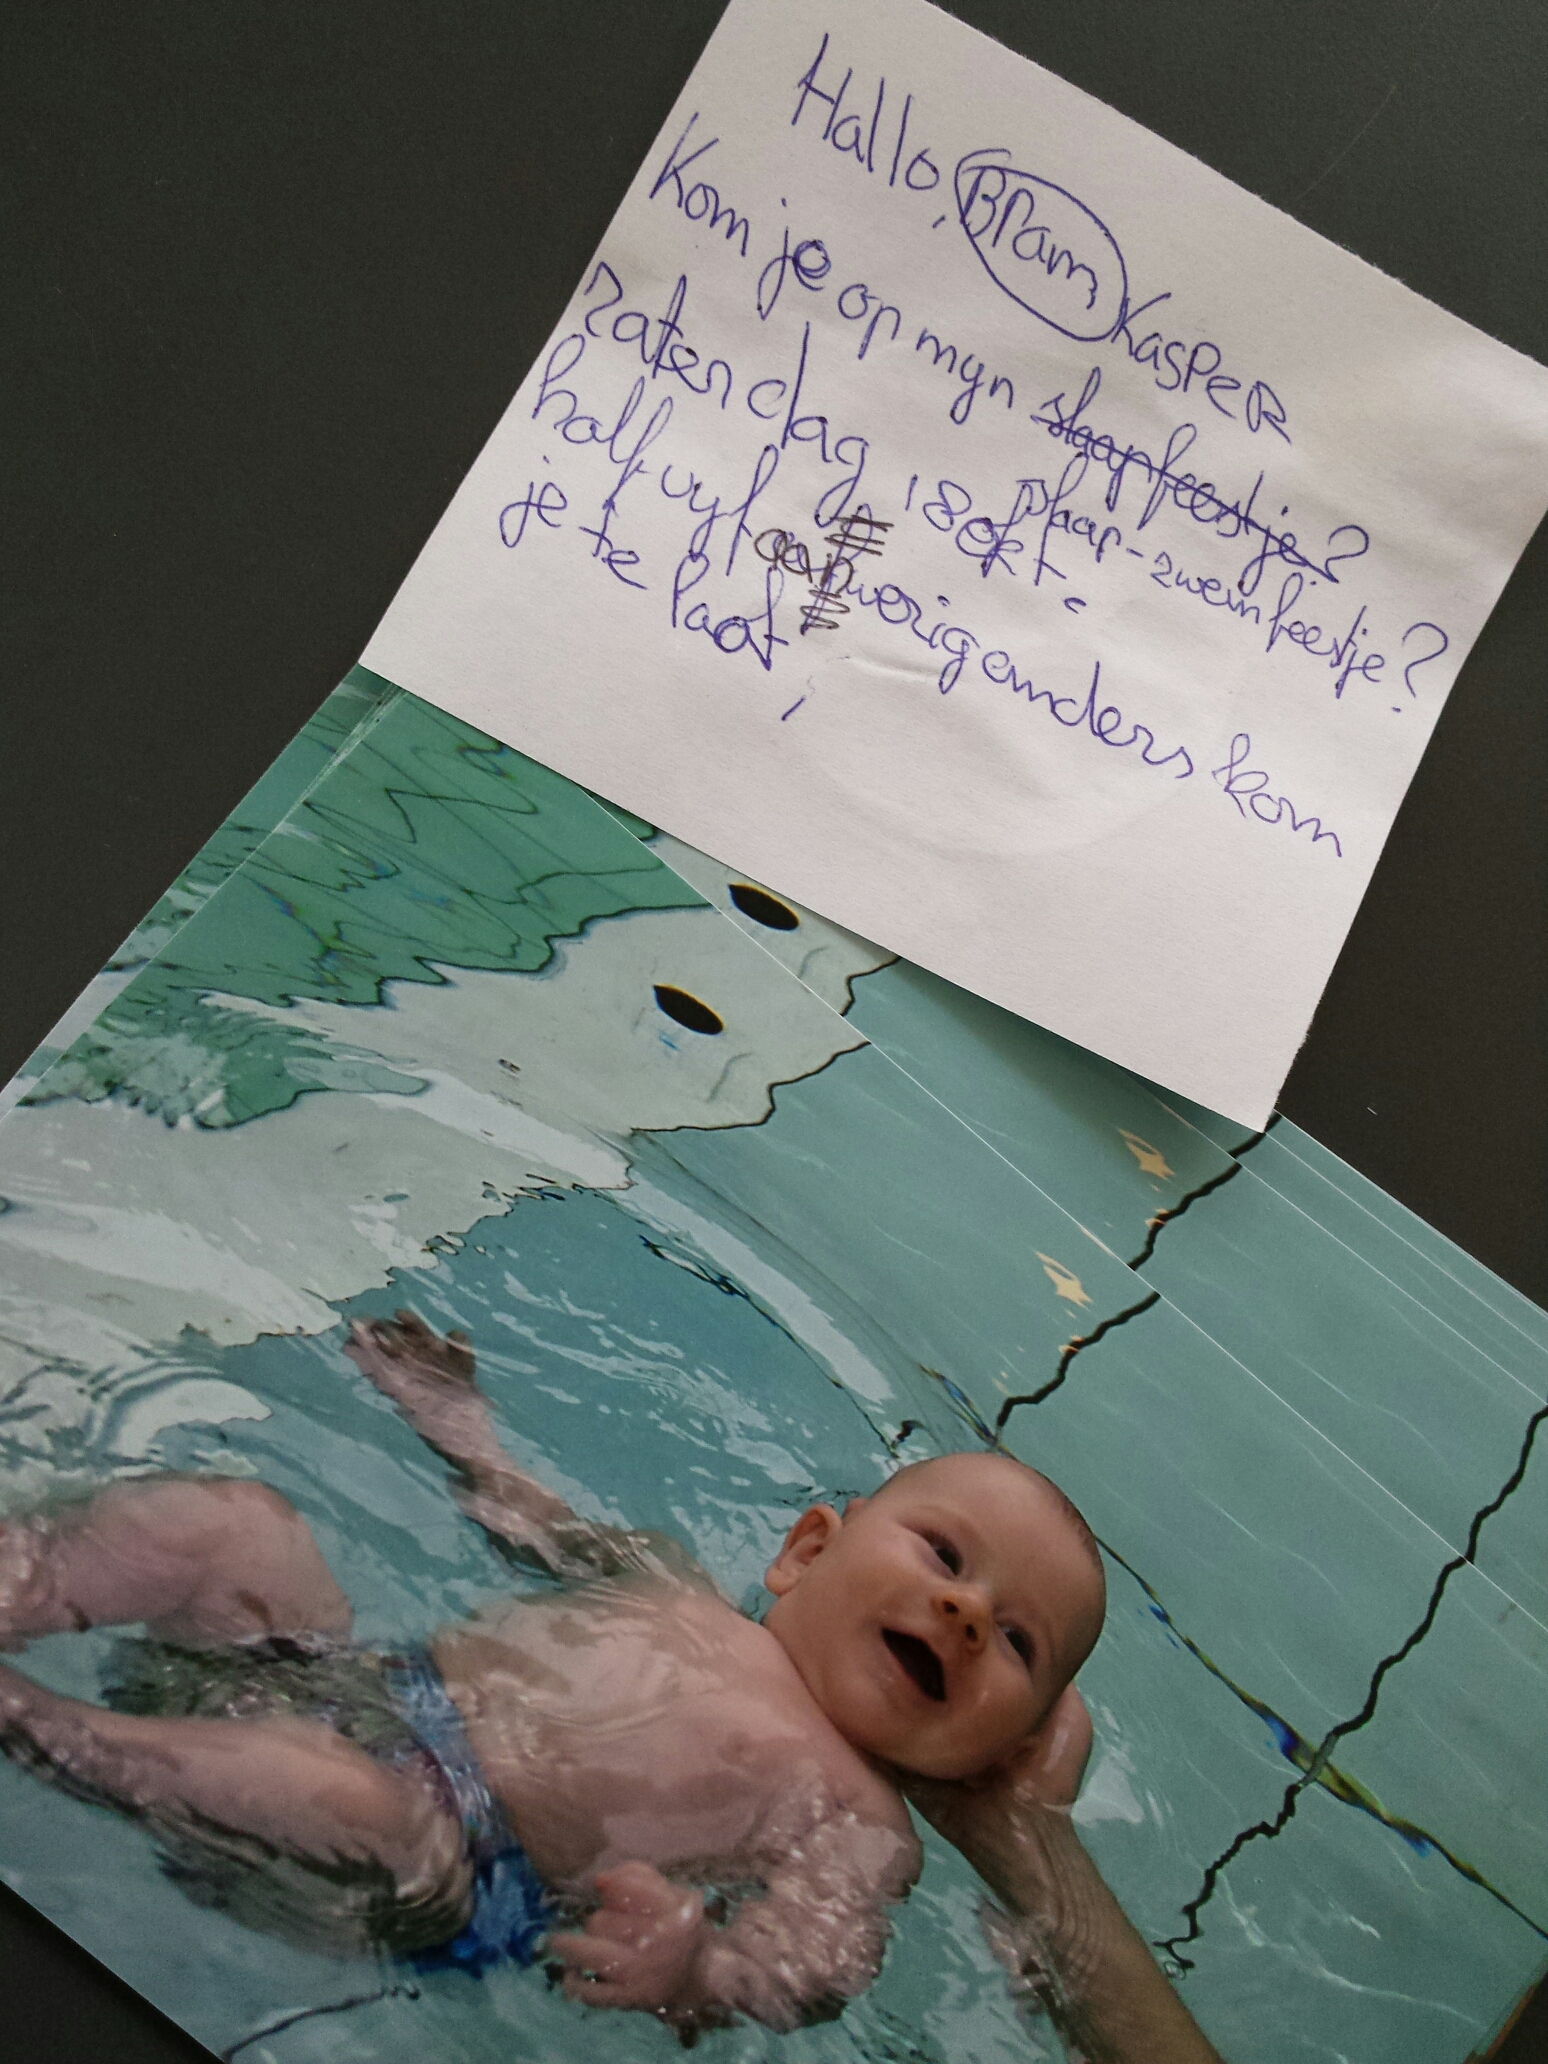 Hallo, Bram Kasper
Kom je op myn slaapfeestje?
slaap-zwemfeestje?
zaterdag 18 okt.
half vyf aanwezig anders kom
je te laat,